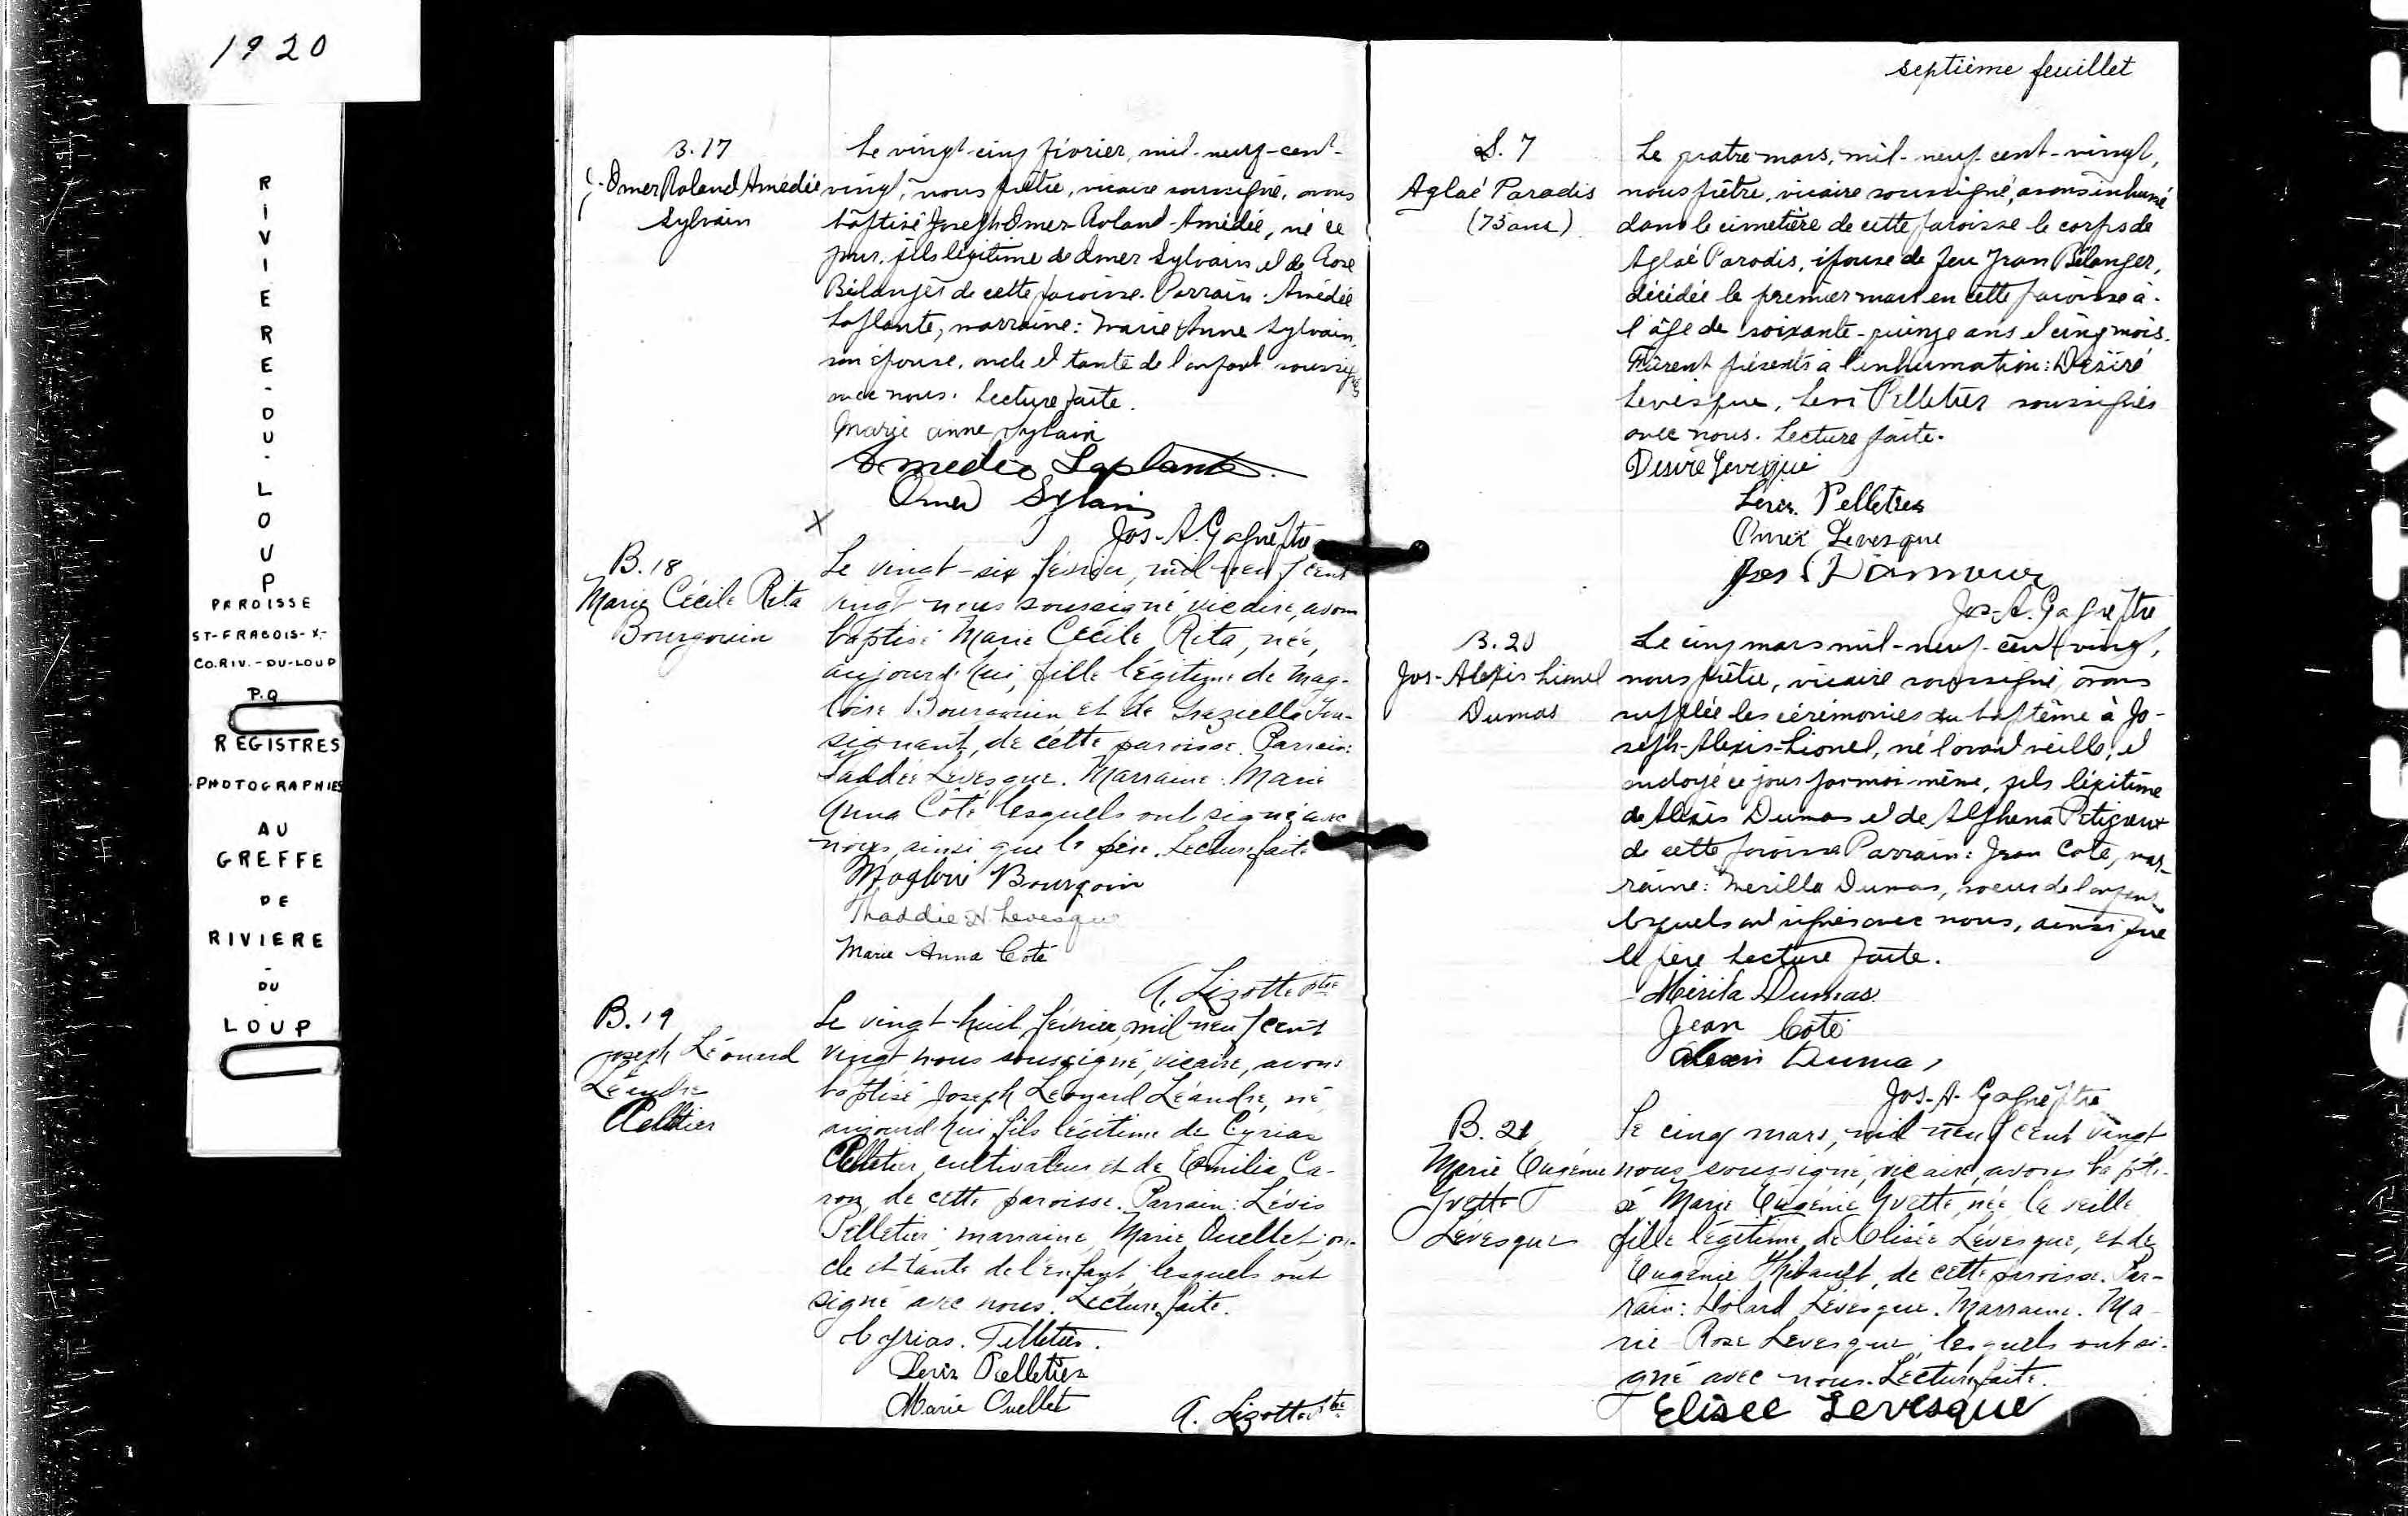 1920
RIVIERE-DU-LOUP
PAROISSE
ST-FRABOIS-X-
CO.RIV.-DU-LOUP
P.Q
REGISTRES
PHOTOGRAPHIES
AU
GREFFE
DE
RIVIERE
-
DU
-
LOUP
B.17
J. Omer Roland Amédée
Sylvain
Le vingt-cinq février, mil-neuf-cent-
vingt, nous prêtre, vicaire soussigné, avons
baptisé Joseph Omer-Roland-Amédée, né ce
jour, fils légitime de Omer Sylvain et de Rose
Bélanger de cette paroisse. Parrain: Amédée
Laplante, marraine: Marie Anne Sylvain,
son épouse, oncle et tante de l'enfant soussignés
avec nous. Lecture faite.
Marie anne Sylvain
Amedée Laplante.
Omer Sylvain
Jos-A. Gagné ptre
X
B.18
Marie Cécile Rita
Bourgouin
Le vingt-six février, mil neuf cent
vingt nous soussigné, vicaire, avons
baptisé Marie Cécile Rita, née,
aujourd'hui, fille légitime de Mag-
loire Bourgouin et de Graziella Tou-
signant, de cette paroisse. Parrain:
Taddée Lévesque. Marraine: Marie
Anna Côté lesquels ont signé avec
nous, ainsi que le père. Lecture faite
Magloire Bourgoin
Thaddie N Levesque
Marie Anna Coté
A. Lizotte ptre
B.19
Joseph Léonard
Léandre
Pelletier
Le vingt-huit février, mil neuf cent
vingt, nous soussigné, vicaire, avons
baptisé Joseph Léonard Léandre, né
aujourd'hui, fils légitime de Cyrias
Pelletier, cultivateur et de Emilia Ca-
ron, de cette paroisse. Parrain: Lévis
Pelletier; marraine, Marie Ouellet, on-
cle et tante de l'enfant, lesquels ont
signé avec nous. Lecture faite.
Cyrias. Pelletier.
Levis Pelletier
Marie Ouellet
A. Lizotte ptre
septième feuillet
S. 7
Aglaé Paradis
(75 ans)
Le quatre mars, mil-neuf-cent-vingt,
nous prêtre, vicaire soussigné, avons inhumé
dans le cimetière de cette paroisse le corps de
Aglaé Paradis, épouse de feu Jean Bélanger,
décédée le premier mars en cette paroisse à
l'âge de soixante-quinze ans et cinq mois.
Fûrent présents à l'inhumation: Désiré
Levesque, Levis Pelletier soussignés
avec nous. Lecture faite.
Desire Levesque
Levis Pelletier
Omer Levesque
Jos Damour
Jos-A. Gagné ptre
B.20
Jos-Alexis Lionel
Dumas
Le cinq mars mil-neuf-cent vingt,
nous prêtre, vicaire soussigné, avons
supplée les cérémonies du baptême à Jo-
seph-Alexis-Lionel, né l'avant veille, et
ondoyé ce jour par moi-même, fils légitime
de Alexis Dumas et de Alphena Petigrew
de cette paroisse Parrain: Jean Coté, mar-
raine: Merilla Dumas, soeur de l'enfant
lesquels ont signés avec nous, ainsi que
le père Lecture faite.
Mérila Dumas
Jean Coté
Alexis Dumas
Jos-A- Gagné ptre
B. 21
Marie Eugénie
Yvette
Lévesque
Le cinq mars, mil neuf cent vingt
nous, soussigné, vicaire, avons bapti-
sé Marie Eugénie Yvette, née la veille
fille légitime de Elisée Lévesque, et de
Eugénie Thibault, de cette paroisse. Par-
rain: Dolard Lévesque. Marraine. Ma-
rie-Rose Levesque, lesquels ont si-
gné avec nous. Lecture faite.
Elisee Levesque